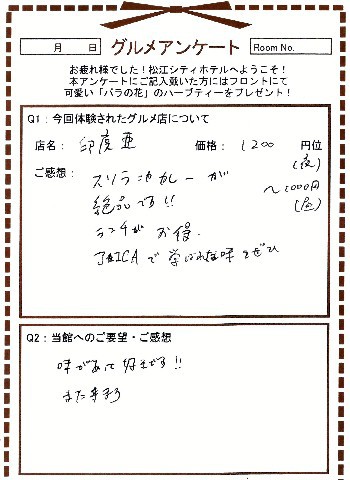 月 日 グルメアンケート Room No.
お疲れ様でした!松江シティホテルへようこそ!
本アンケートにご記入戴いた方にはフロントにて
可愛い「バラの花」のハーブティーをプレゼント!
Q1:今回体験されたグルメ店について
店名: 印度亜 価格: 1200 円位
(夜)
ご感想: スリランカカレーが 〜1000円
(昼)
絶品です!!
ランチがお得.
JAICAで学ばれた味をぜひ
Q2:当館へのご要望・ご感想
味があって好きです!!
また来まろう